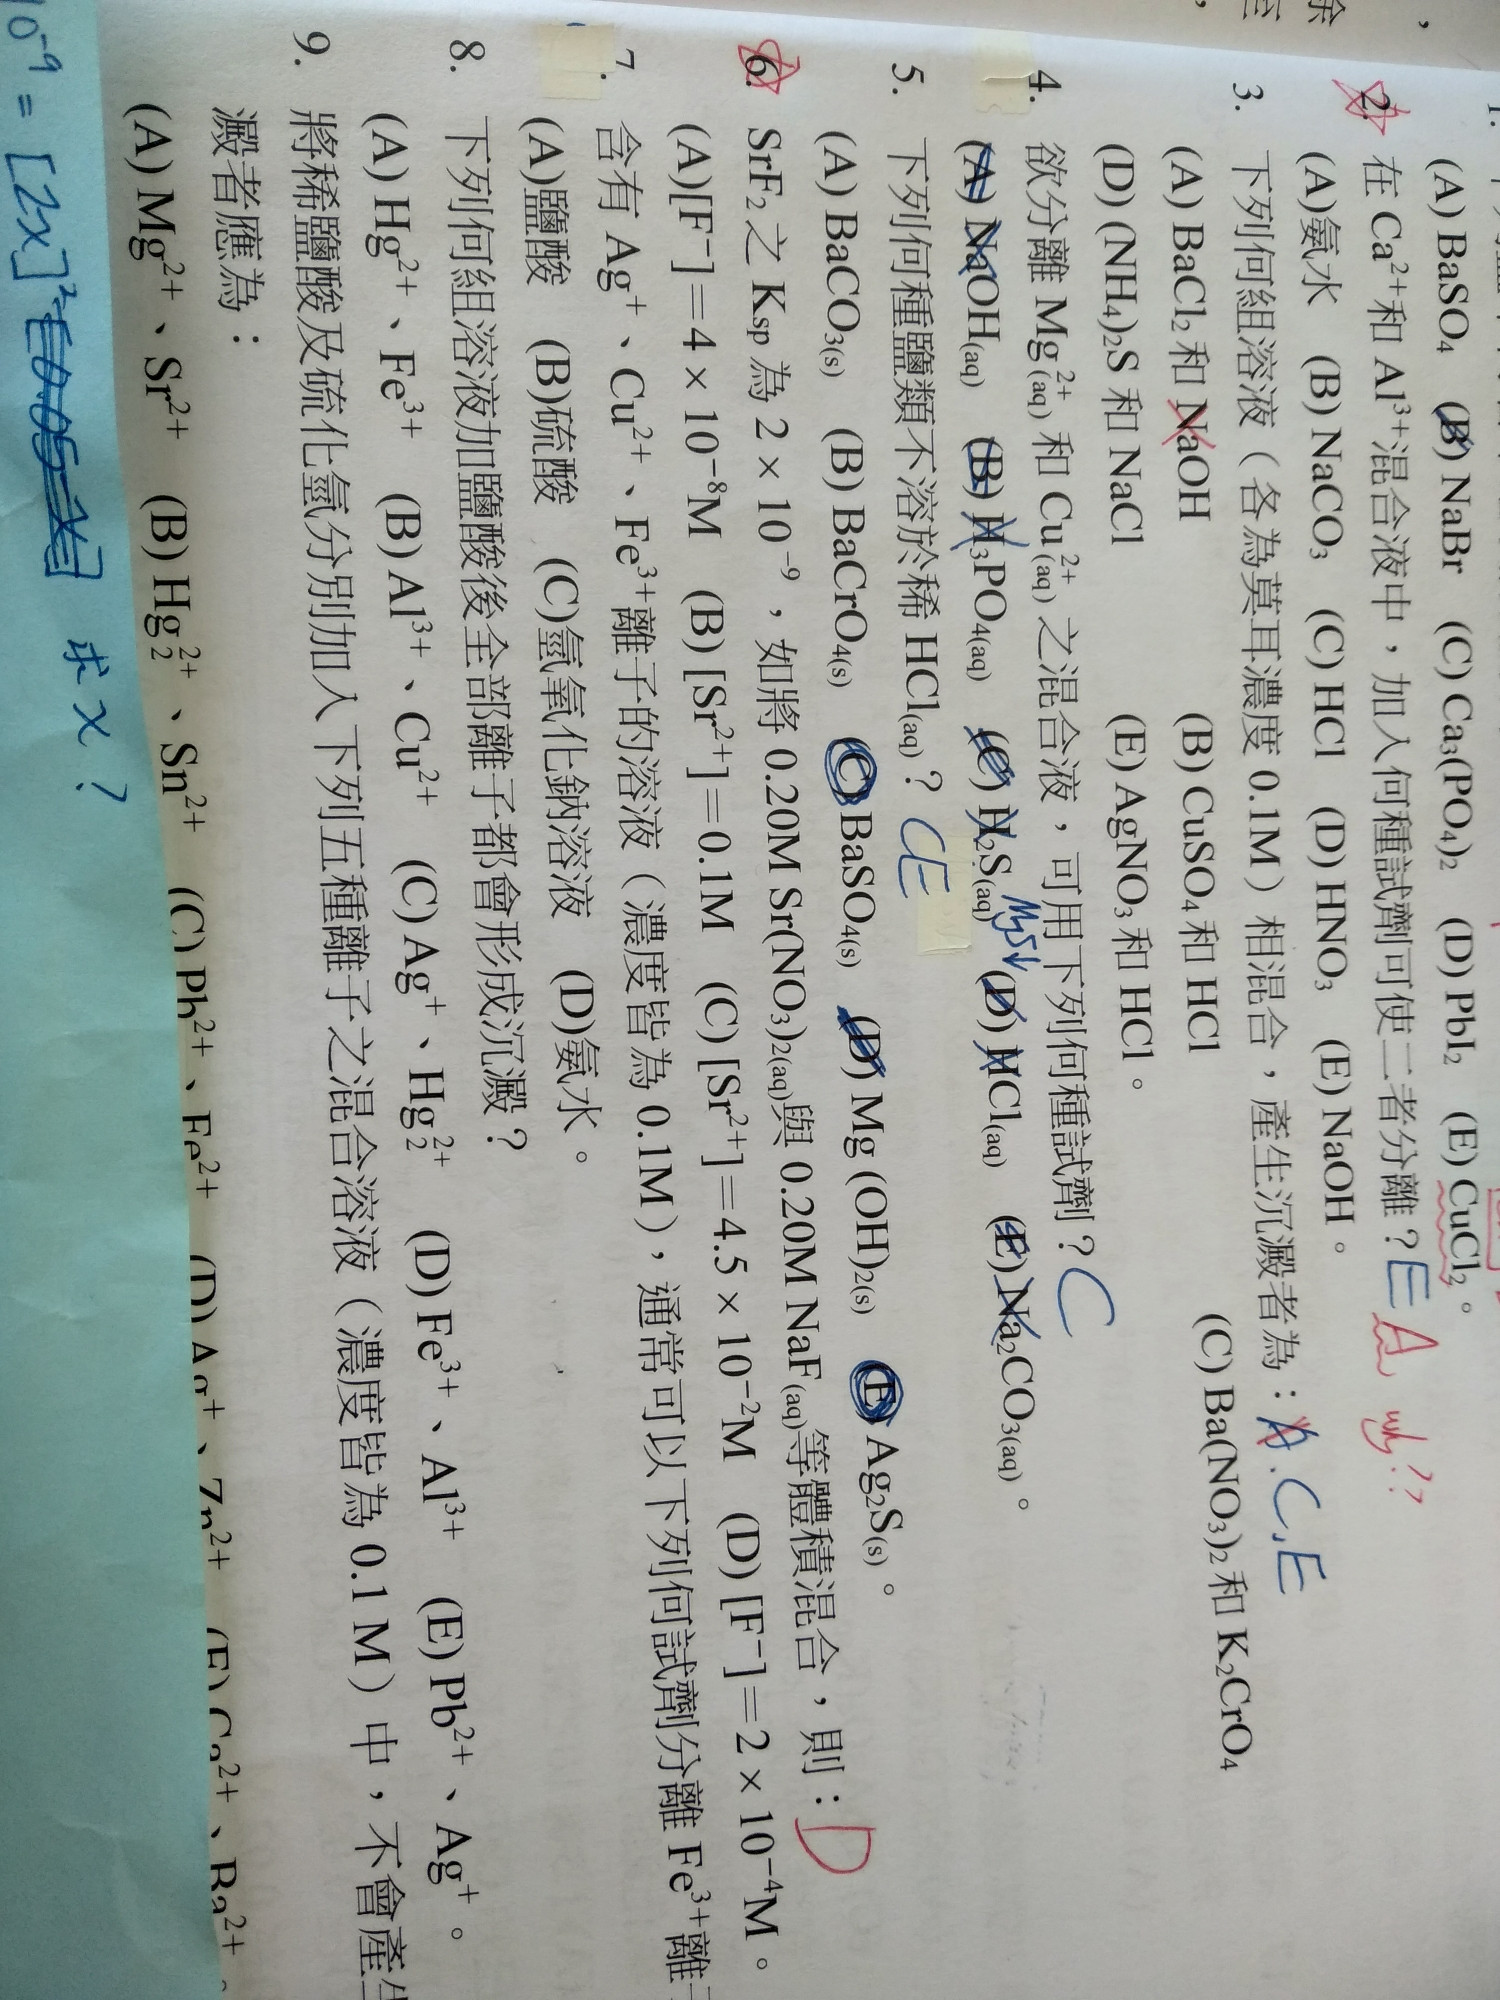 (A) BaSO₄ (B) NaBr (C) Ca₃(PO₄)₂ (D) PbI₂ (E) CuCl₂。
2. 在 Ca²⁺和 Al³⁺混合液中，加入何種試劑可使二者分離？E A why??
(A)氨水 (B) NaCO₃ (C) HCl (D) HNO₃ (E) NaOH。
3. 下列何組溶液（各為莫耳濃度 0.1M）相混合，產生沉澱者為：A.C,E
(A) BaCl₂ 和 NaOH (B) CuSO₄ 和 HCl (C) Ba(NO₃)₂ 和 K₂CrO₄
(D) (NH₄)₂S 和 NaCl (E) AgNO₃ 和 HCl。
4. 欲分離 Mg²⁺(aq) 和 Cu²⁺(aq) 之混合液，可用下列何種試劑？C
(A) NaOH(aq) (B) H₃PO₄(aq) (C) H₂S(aq) MgS↓ (D) HCl(aq) (E) Na₂CO₃(aq)。
5. 下列何種鹽類不溶於稀 HCl(aq)？CE
(A) BaCO₃(s) (B) BaCrO₄(s) (C) BaSO₄(s) (D) Mg (OH)₂(s) (E) Ag₂S(s)。
6. SrF₂ 之 Ksp 為 2 × 10⁻⁹，如將 0.20M Sr(NO₃)₂(aq)與 0.20M NaF(aq)等體積混合，則：D
(A)[F⁻]＝4 × 10⁻⁸M (B) [Sr²⁺]＝0.1M (C) [Sr²⁺]＝4.5 × 10⁻²M (D) [F⁻]＝2 × 10⁻⁴M。
7. 含有 Ag⁺、Cu²⁺、Fe³⁺離子的溶液（濃度皆為 0.1M），通常可以下列何試劑分離 Fe³⁺離
(A)鹽酸 (B)硫酸 (C)氫氧化鈉溶液 (D)氨水。
8. 下列何組溶液加鹽酸後全部離子都會形成沉澱？
(A) Hg²⁺、Fe³⁺ (B) Al³⁺、Cu²⁺ (C) Ag⁺、Hg₂²⁺ (D) Fe³⁺、Al³⁺ (E) Pb²⁺、Ag⁺。
9. 將稀鹽酸及硫化氫分別加入下列五種離子之混合溶液（濃度皆為 0.1 M）中，不會產
澱者應為：
(A) Mg²⁺、Sr²⁺ (B) Hg₂²⁺、Sn²⁺ (C) Pb²⁺、Fe²⁺ (D) Ag⁺、Zn²⁺ (E) Ca²⁺、Ba²⁺。
10⁻⁹ = [2x]² 求 x？